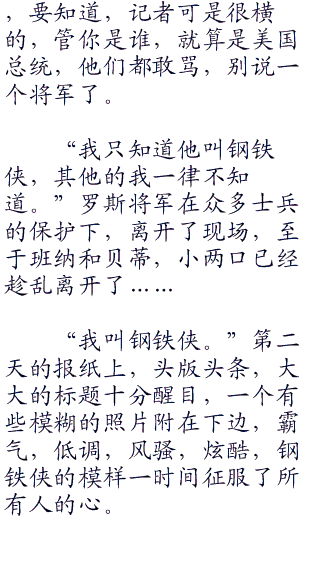 ，要知道，记者可是很横
的，管你是谁，就算是美国
总统，他们都敢骂，别说一
个将军了。
“我只知道他叫钢铁
侠，其他的我一律不知
道。”罗斯将军在众多士兵
的保护下，离开了现场，至
于班纳和贝蒂，小两口已经
趁乱离开了……
“我叫钢铁侠。”第二
天的报纸上，头版头条，大
大的标题十分醒目，一个有
些模糊的照片附在下边，霸
气，低调，风骚，炫酷，钢
铁侠的模样一时间征服了所
有人的心。